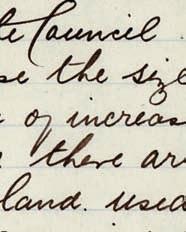 te Council
se the siz
of increas
there are
land. used